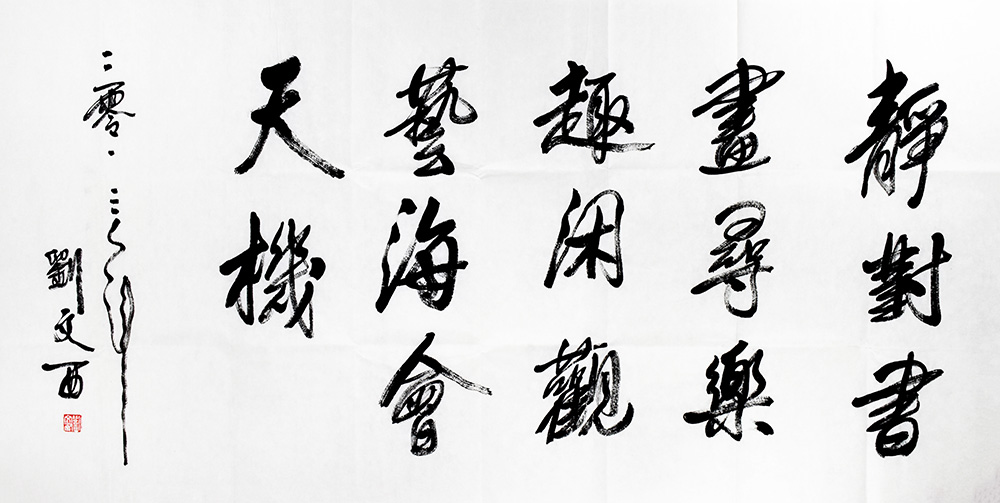 靜對書
畫尋樂
趣闲觀
藝海會
天機
二零一二年
劉文西